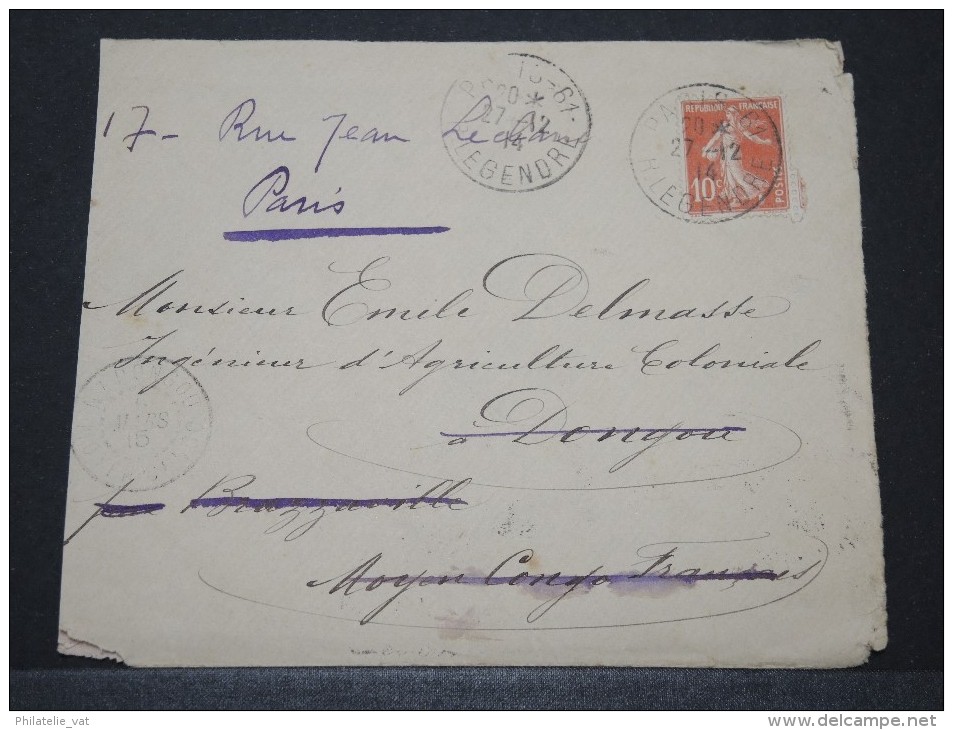 17- Rue Jean Leclaire
Paris
PARIS-61
20 *
27 -12
14
R. LEGENDRE
PARIS-61
20 *
27 -12
14
R. LEGENDRE
REPUBLIQUE FRANÇAISE
10c
POSTES
Monsieur Emile Delmasse
Ingénieur d'Agriculture Coloniale
à Dongou
MARS
15
par Brazzaville
Moyen Congo Français
Philatelie_vat
www.delcampe.net